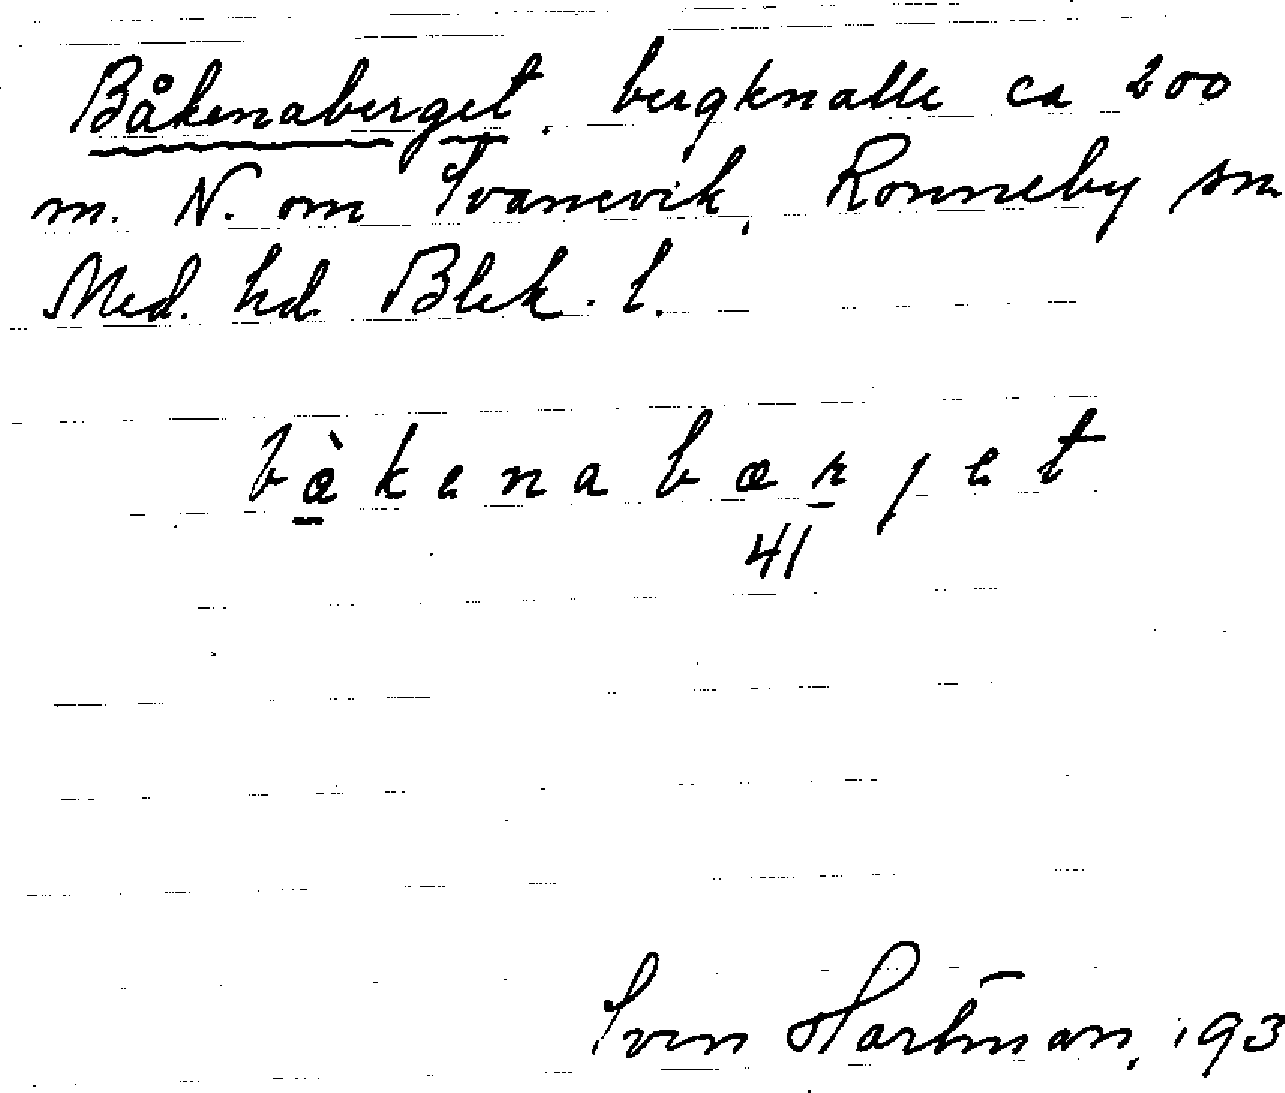 Båkenaberget, bergknalle ca 200
m. N. om Svanevik, Ronneby sn
Med. hd. Blek. l.
bàkenabærjet
41
Sven Hartman, 193